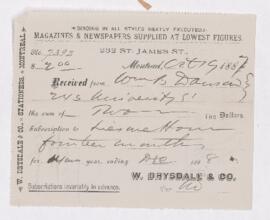 BINDING IN ALL STYLES NEATLY EXECUTED
MAGAZINES & NEWSPAPERS SUPPLIED AT LOWEST FIGURES.
No. 7393
232 ST. JAMES ST.
$ 2.00
Montreal, Oct 19 1887
Received from Wm B. Dawson
243 University St
the sum of Two Dollars
Subscription to Leisure Hour
fourteen months
for year ending Dec 188
W. DRYSDALE & CO.
Subscriptions invariably in advance.
W. DRYSDALE & CO. STATIONERS, MONTREAL